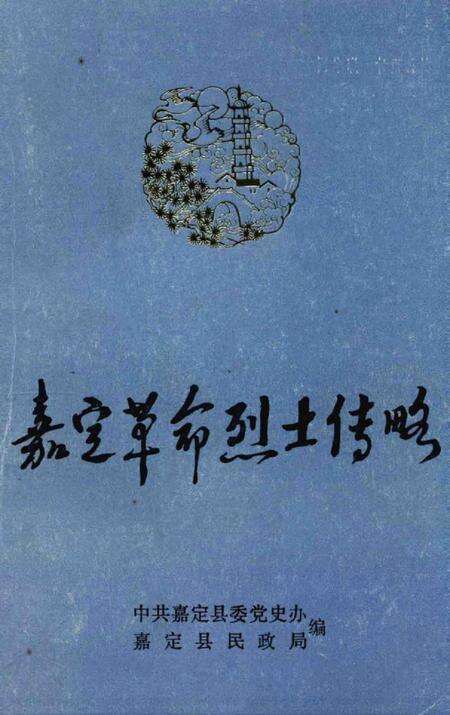 嘉定革命烈士传略
中共嘉定县委党史办
嘉定县民政局
编